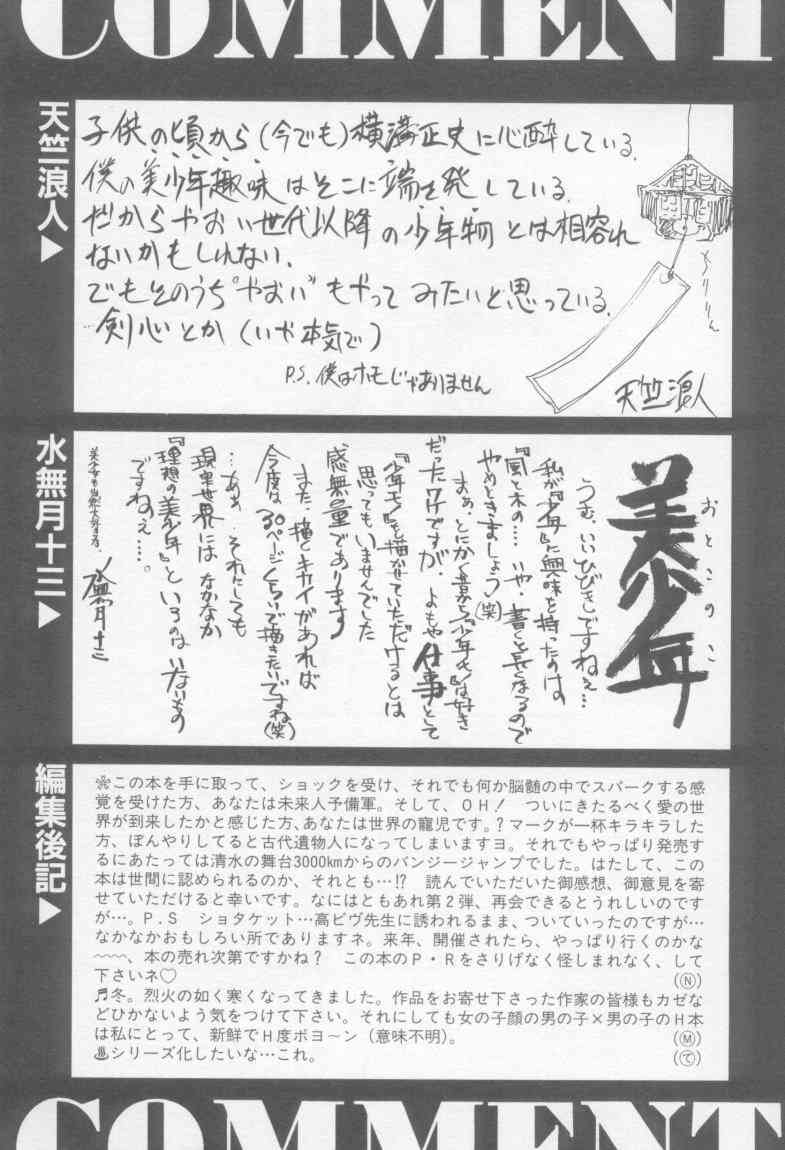 COMMENT
天竺浪人▶
子供の頃から(今でも)横溝正史に心酔している.
僕の美少年趣味はそこに端を発している.
だからやおい世代以降の少年物とは相容れ
ないかもしれない.
でもそのうち"やおい"もやってみたいと思っている.
剣心とか(いや本気で)
P.S. 僕はホモじゃありません
ちりりん
天竺浪人
水無月十三▶
美少年
おとこのこ
うむ、いいひびきですねぇ…
私が『少年』に興味を持ったのは
『風と木の…いや、書くと長くなるので
やめときましょう(笑)
まぁ、とにかく昔から『少年モノ』は好き
だったワケですが、よもや仕事として
『少年モノ』を描かせていただけるとは
思ってもいませんでした
感無量であります
また、描くキカイがあれば
今度は30ページくらいで描きたいですね(笑)
…なぁ、それにしても
現実世界にはなかなか
『理想の美少年』というのはいないもの
ですねぇ…。
美少女も当然大好きさ!
水無月十三
編集後記▶
❊この本を手に取って、ショックを受け、それでも何か脳髄の中でスパークする感
覚を受けた方、あなたは未来人予備軍。そして、OH! ついにきたるべく愛の世
界が到来したかと感じた方、あなたは世界の寵児です。?マークが一杯キラキラした
方、ぼんやりしてると古代遺物人になってしまいますヨ。それでもやっぱり発売す
るにあたっては清水の舞台3000kmからのバンジージャンプでした。はたして、この
本は世間に認められるのか、それとも…!? 読んでいただいた御感想、御意見を寄
せていただけると幸いです。なにはともあれ第2弾、再会できるとうれしいのです
が…。P.S ショタケット…高ビヴ先生に誘われるまま、ついていったのですが…
なかなかおもしろい所でありますネ。来年、開催されたら、やっぱり行くのかな
〜〜、本の売れ次第ですかね? この本のP・Rをさりげなく怪しまれなく、して
下さいネ♡ (Ⓝ)
♬冬。烈火の如く寒くなってきました。作品をお寄せ下さった作家の皆様もカゼな
どひかないよう気をつけて下さい。それにしても女の子顔の男の子×男の子のH本
は私にとって、新鮮でH度ボヨ〜ン(意味不明)。 (Ⓜ)
♨シリーズ化したいな…これ。 (て)
COMMENT